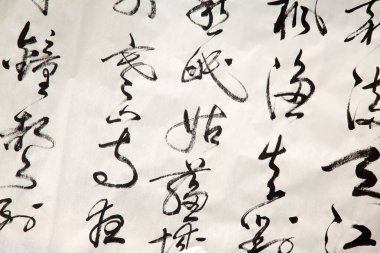 滿天江
楓漁火對
眠姑蘇城
寒山寺夜
鐘聲到